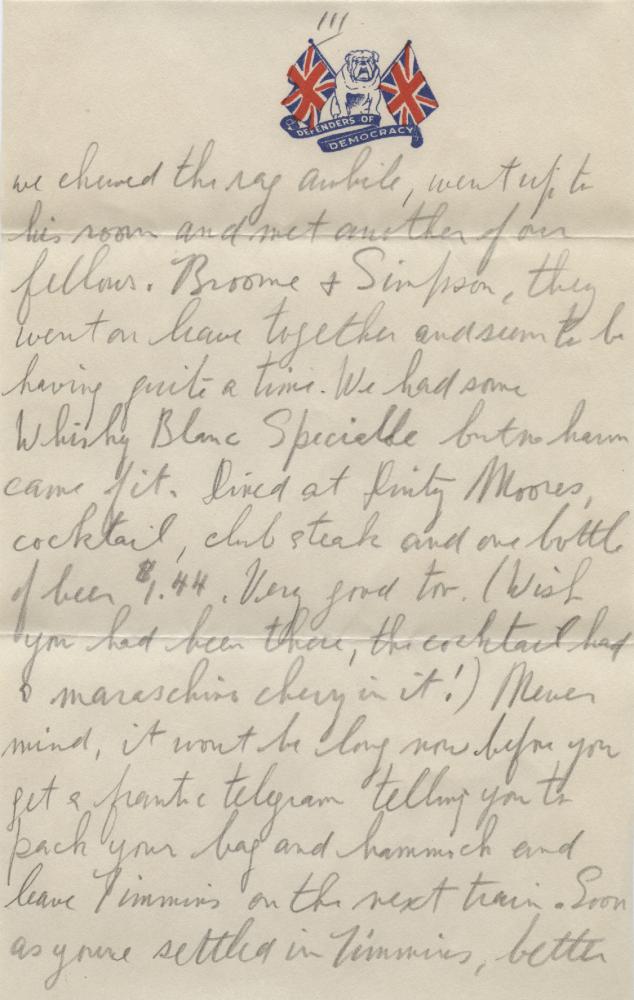 111
DEFENDERS OF
DEMOCRACY
we chewed the rag awhile, went up to
his room and met another of our
fellows. Broome & Simpson, they
went on leave together and seem to be
having quite a time. We had some
Whisky Blanc Specialle but no harm
came of it. Dined at Dinty Moores,
cocktail, club steak and one bottle
of beer $1.44. Very good too. (Wish
you had been there, the cocktail had
a maraschino cherry in it!) Never
mind, it wont be long now before you
get a frantic telegram telling you to
pack your bag and hammock and
leave Timmins on the next train. Soon
as youre settled in Timmins, better